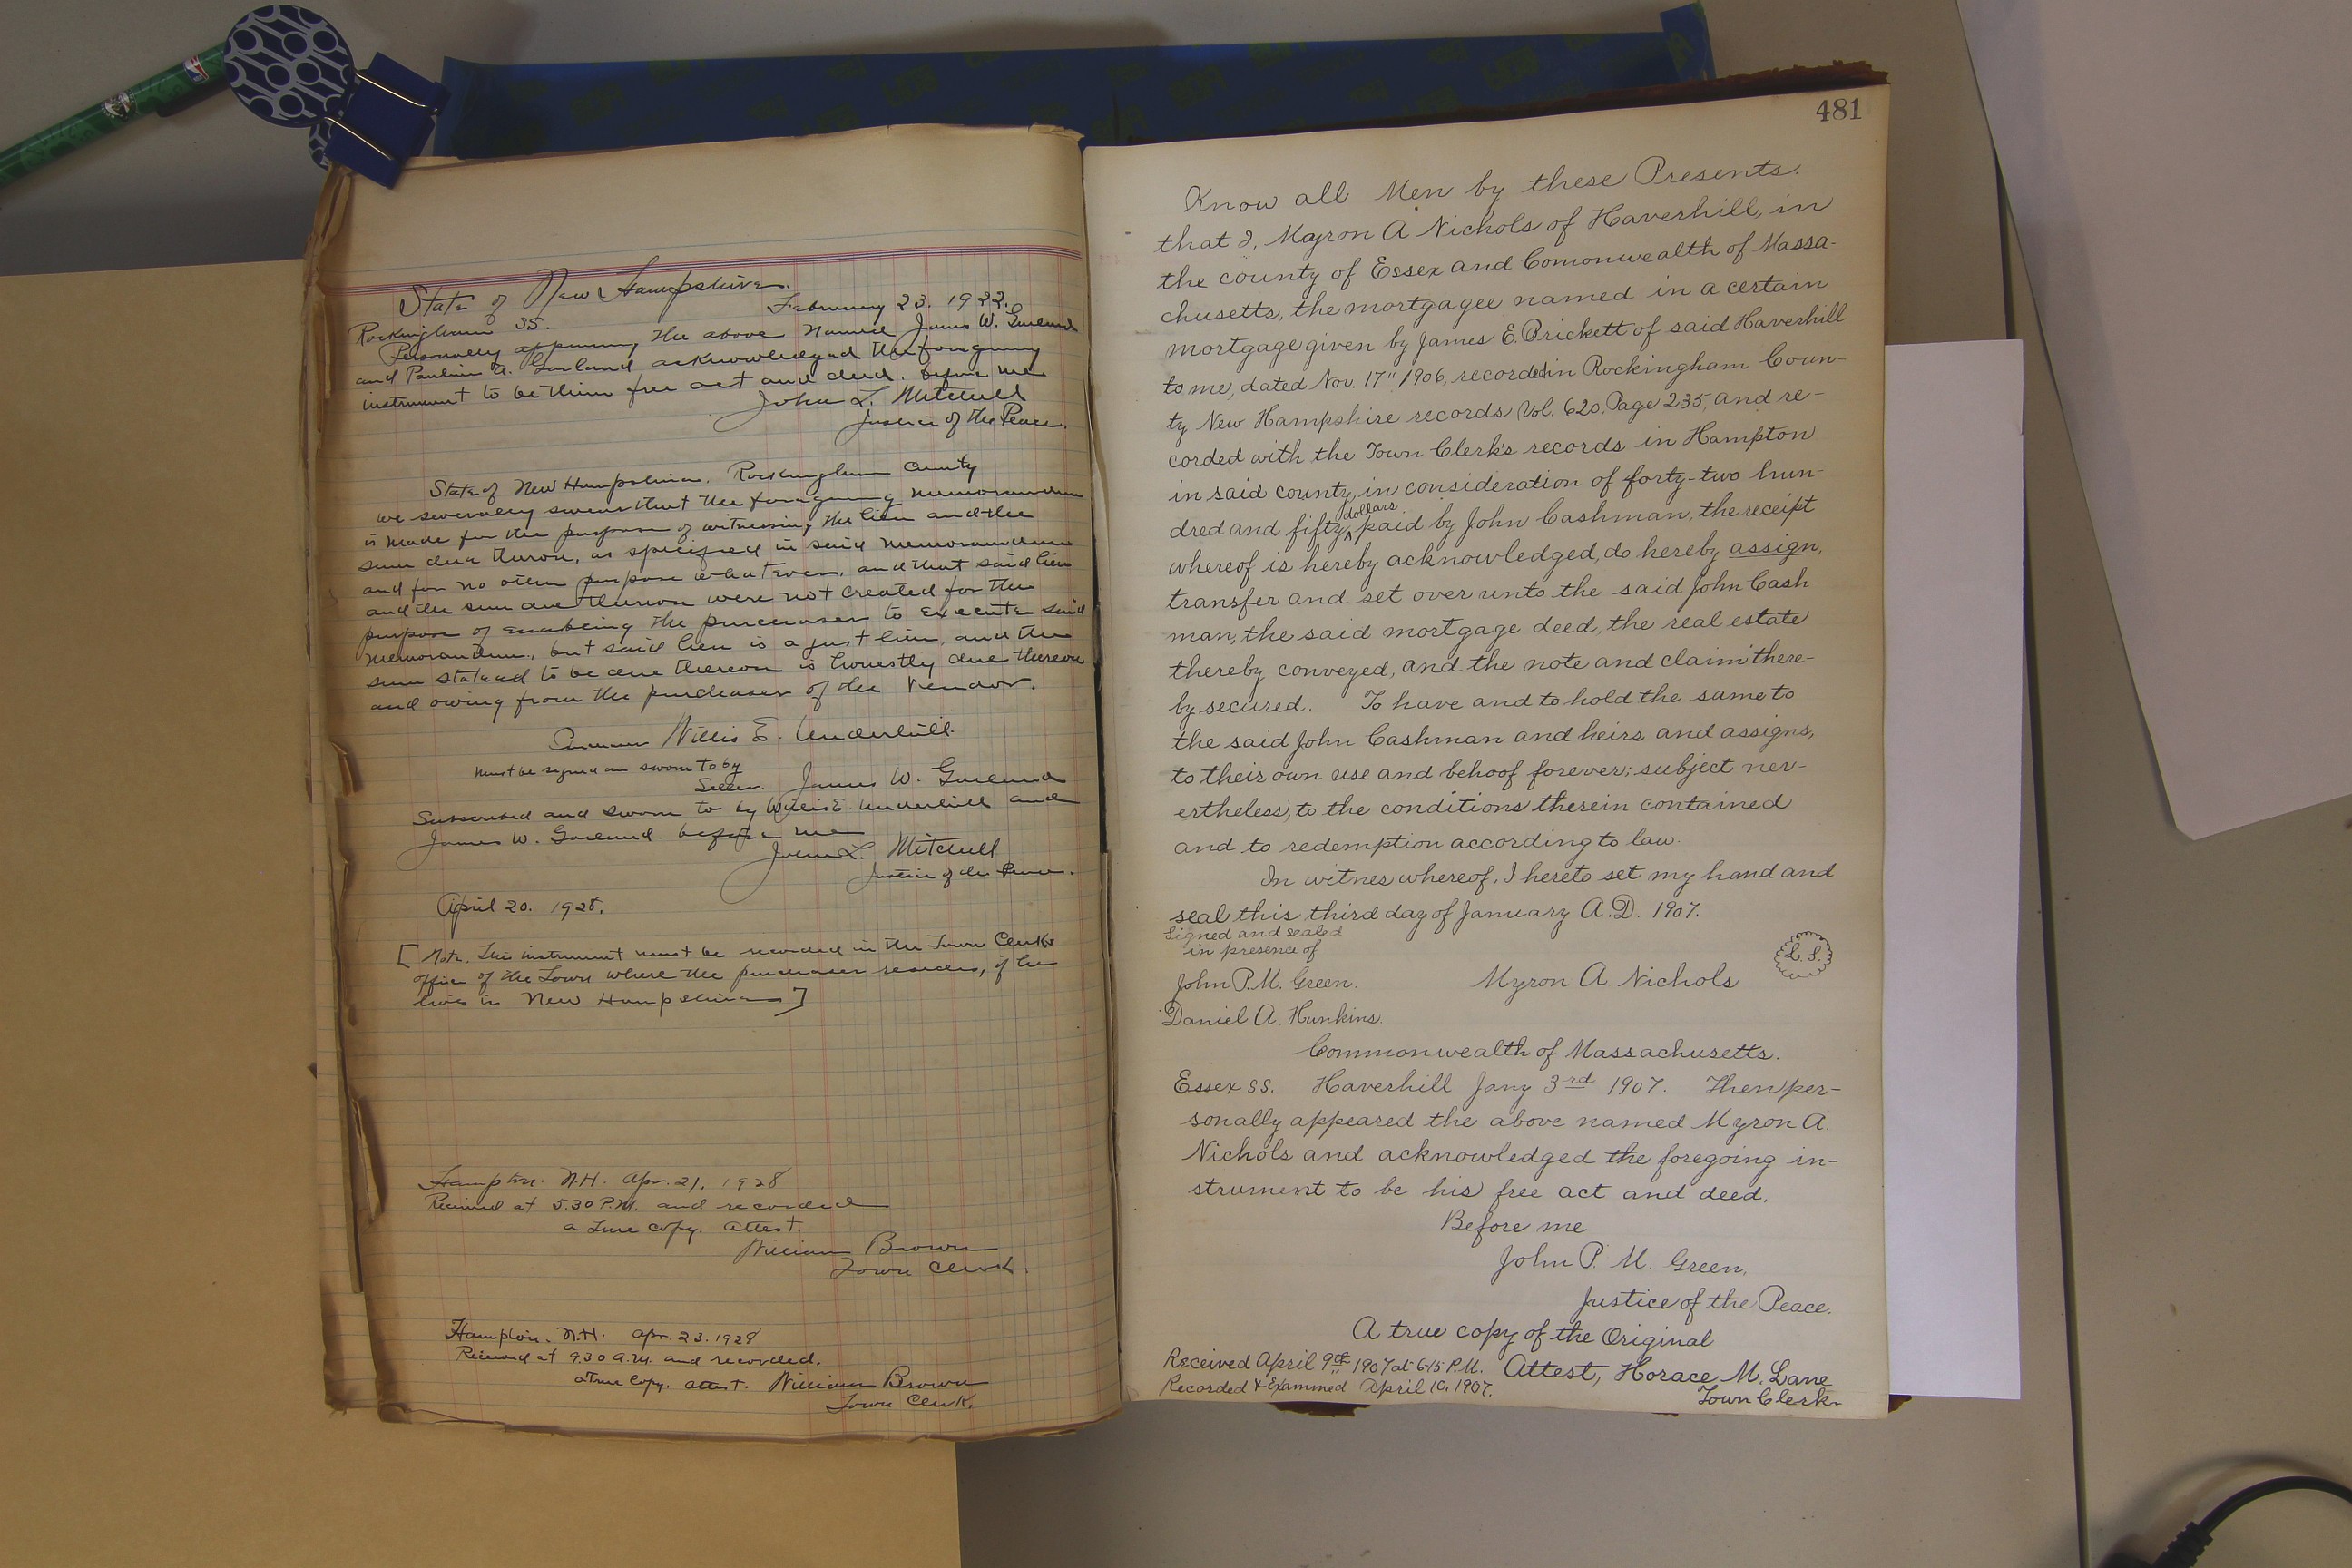 State of New Hampshire.
February 23. 1922.
Rockingham SS.
Personally appearing the above named James W. Garland
and Pauline A. Garland acknowledged the foregoing
instrument to be their free act and deed. before me
John L. Mitchell
Justice of the Peace.
State of New Hampshire. Rockingham County
we severally swear that the foregoing memorandum
is made for the purpose of witnessing the lien and the
sum due thereon, as specified in said memorandum
and for no other purpose whatever, and that said lien
and the sum due thereon were not created for the
purpose of enabeing the purchaser to execute said
memorandum, but said lien is a just lien, and the
sum stated to be due thereon is honestly due thereon
and owing from the purchaser of the Vendor.
Willis E. Underhill
Must be signed an sworn to by
Seller. James W. Garland
Subscribed and sworn to by Willis E. Underhill and
James W. Garland before me
John L. Mitchell
Justice of the Peace.
April 20. 1928.
[Note. This instrument must be recorded in the Town Clerks
office of the Town where the purchaser resides, if he
lives in New Hampshire]
Hampton. N.H. Apr. 21, 1928
Received at 5.30 P.M. and recorded
a true copy. attest.
William Brown
Town Clerk.
Hampton. N.H. apr. 23. 1928
Received at 9.30 a.m. and recorded.
a true copy. attest. William Brown
Town Clerk.
481
Know all Men by these Presents.
that I, Myron A Nichols of Haverhill, in
the county of Essex and Comonwealth of Massa-
chusetts, the mortgagee named in a certain
mortgage given by James E. Prickett of said Haverhill
to me, dated Nov. 17" 1906, recorded in Rockingham Coun-
ty New Hampshire records Vol. 620, Page 235, and re-
corded with the Town Clerk's records in Hampton
in said county, in consideration of forty-two hun-
dred and fifty dollars paid by John Cashman, the receipt
whereof is hereby acknowledged, do hereby assign,
transfer and set over unto the said John Cash-
man, the said mortgage deed, the real estate
thereby conveyed, and the note and claim there-
by secured. To have and to hold the same to
the said John Cashman and heirs and assigns,
to their own use and behoof forever; subject nev-
ertheless, to the conditions therein contained
and to redemption according to law.
In witnes whereof, I hereto set my hand and
seal this third day of January A.D. 1907.
Signed and sealed
in presence of
John P. M. Green. Myron A Nichols L. S.
Daniel A. Hunkins.
Commonwealth of Massachusetts.
Essex SS. Haverhill Jany 3rd 1907. Then per-
sonally appeared the above named Myron A.
Nichols and acknowledged the foregoing in-
strument to be his free act and deed.
Before me
John P. M. Green,
Justice of the Peace.
A true copy of the Original
Received April 9th 1907 at 6-15 P.M. Attest, Horace M. Lane
Recorded & Examined April 10, 1907. Town Clerk.